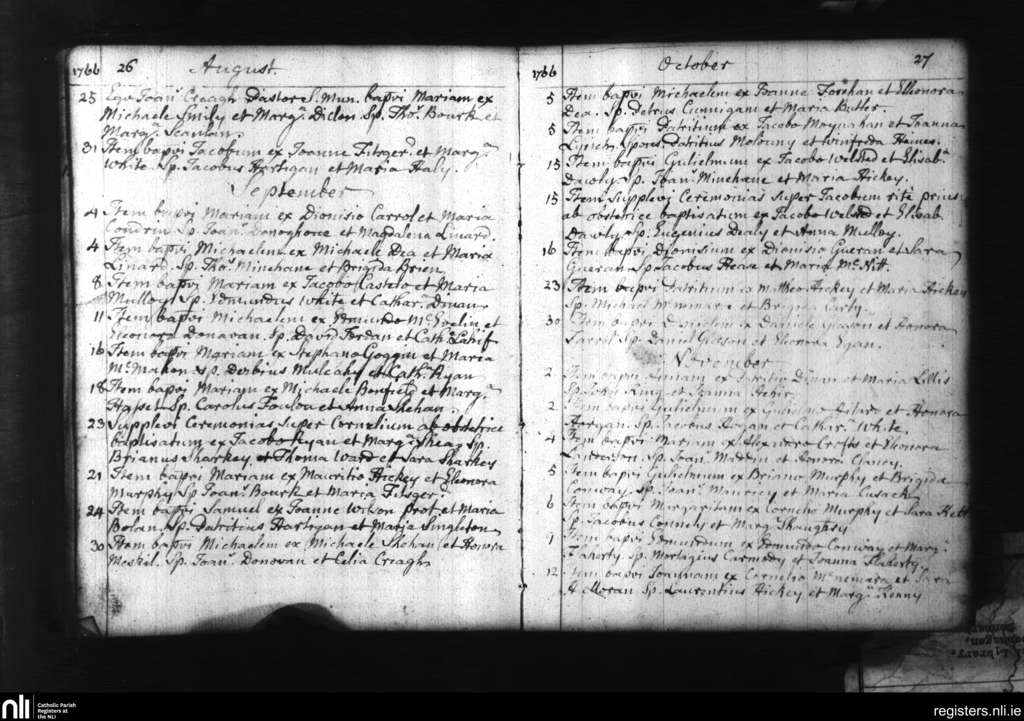 1766 26 August
25 Ego Joan. Creagh Pastor S. Mun. bapvi Mariam ex
Michaele Smily et Marg. Diclen Sp. Tho. Bourk et
Marg. Scanlan.
31 Item bapvi Jacobum ex Joanne Fitsger. et Marg.
White. Sp. Jacobus Hartigan et Maria Haly.
September
4 Item bapvi Mariam ex Dionisio Carrol et Maria
Condrin Sp. Joan. Donoghoee et Magdalena Linard.
4 Item bapvi Michaelem ex Michaele Dea et Maria
Linard. Sp. Tho. Minehane et Brigida Brien.
8 Item bapvi Mariam ex Jacobo Castelo et Maria
Mulloy Sp. Edmundus White et Cathar. Dinan.
11 Item bapvi Michaelem ex Edmundo Mc et
Eleonora Donavan. Sp. David Jordan et Cath. Lahif
16 Item bapvi Mariam ex Stephano Goggin et Maria
Mc Mahon sp. Derbius Mulcahy et Cath. Ryan
18 Item bapvi Mariam ex Michaele Bonfield et Marg.
Sp. Carolus et Anna Shehan.
23 Supplevi Ceremonias Super Cornelium ab obstetrice
baptisatum ex Jacobo Ryan et Marg. Shea Sp.
Brianus Sharkey et Thoma Ward et Sara Sharkey
21 Item bapvi Mariam ex Mauritio Hickey et Eleonora
Murphy Sp Joan. Bourk et Maria Fitsger.
24 Item bapvi Samuel ex Joanne Wilson prot. et Maria
Bolan. Sp. Patritius Hartigan et Maria Singleton
30 Item bapvi Michaelem ex Michaele Shehan et Honora
Meskel. Sp. Joan. Donovan et Celia Creagh
1766 October 27
5 Item bapvi Michaelem ex Joanne Forehan et Eleonora
Dea. Sp. Petrus Cunnigam et Maria Butler.
5 Item bapvi Patritium ex Jacobo Moynahan et Joanna
Lynch. Patritius Molouny et Winfreda Haines.
15 Item bapvi Gulielmum ex Jacobo Welsted et Elisab.
Dawly Sp. Joan. Minehane et Maria Hickey.
15 Item Supplevi Ceremonias Super Jacobum rite prius
ab obstetrice baptisatum ex Jacobo Welsted et Elisab
Dawly sp. Eugenius Dealy et Anna Mulloy.
16 Item bapvi Dionisium ex Dionisio Gueran et Sara
Gueran Sp Jacobus Heare et Maria Mc Nitt.
23 Item bapvi Patritium ex Matheo Hickey et Maria Hickey
Sp. Michael Mc nemara et Brigida Carty.
30 Item bapvi ex Daniele Gleeson et Honora
Sp. Daniel Gleeson et Honora Egan.
November
2 Item bapvi ex Patritio Dinan et Maria Lillis
Sp. King et Joanna
2 Item bapvi Gulielmum ex et Honora
Horgan. Sp. Jacobus Horgan et Cathar. White.
4 Item bapvi Mariam ex Alexandro Crofts et Honora
Sp. Joan. Maddin et Honora Clancy.
5 Item bapvi Gulielmum ex Briano Murphy et Brigida
Conway. Sp. Joan. et Maria Cusack
6 Item bapvi Margaritam ex Cornelio Murphy et Sara
Sp. Jacobus Connely et Marg. Shaughsy
Item bapvi Edmundum ex Edmundo Conway et Marg.
Flaherty. Sp. Mortagius Carmody et Joanna Flaherty.
12 Item bapvi Joannam ex Cornelio Mc nemara et Sara
Moran Sp. Laurentius Hickey et Marg. Kenny
nli Catholic Parish
Registers at
the NLI
registers.nli.ie